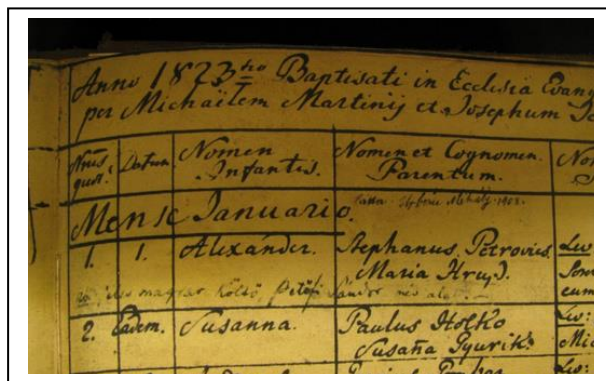 Anno 1823tio Baptisati in Ecclesia Evang
per Michaëlem Martiny et Josephum
Nrus Datum. Nomen Infantis. Nomen et Cognomen Parentum.
Mense Januario.
1. 1. Alexander. Stephanus Petrovics
Maria Hruz.
magyar költő, Petőfi Sándor név alatt.
2. Eadem. Susanna. Paulus Holko
Susaña Gyurik